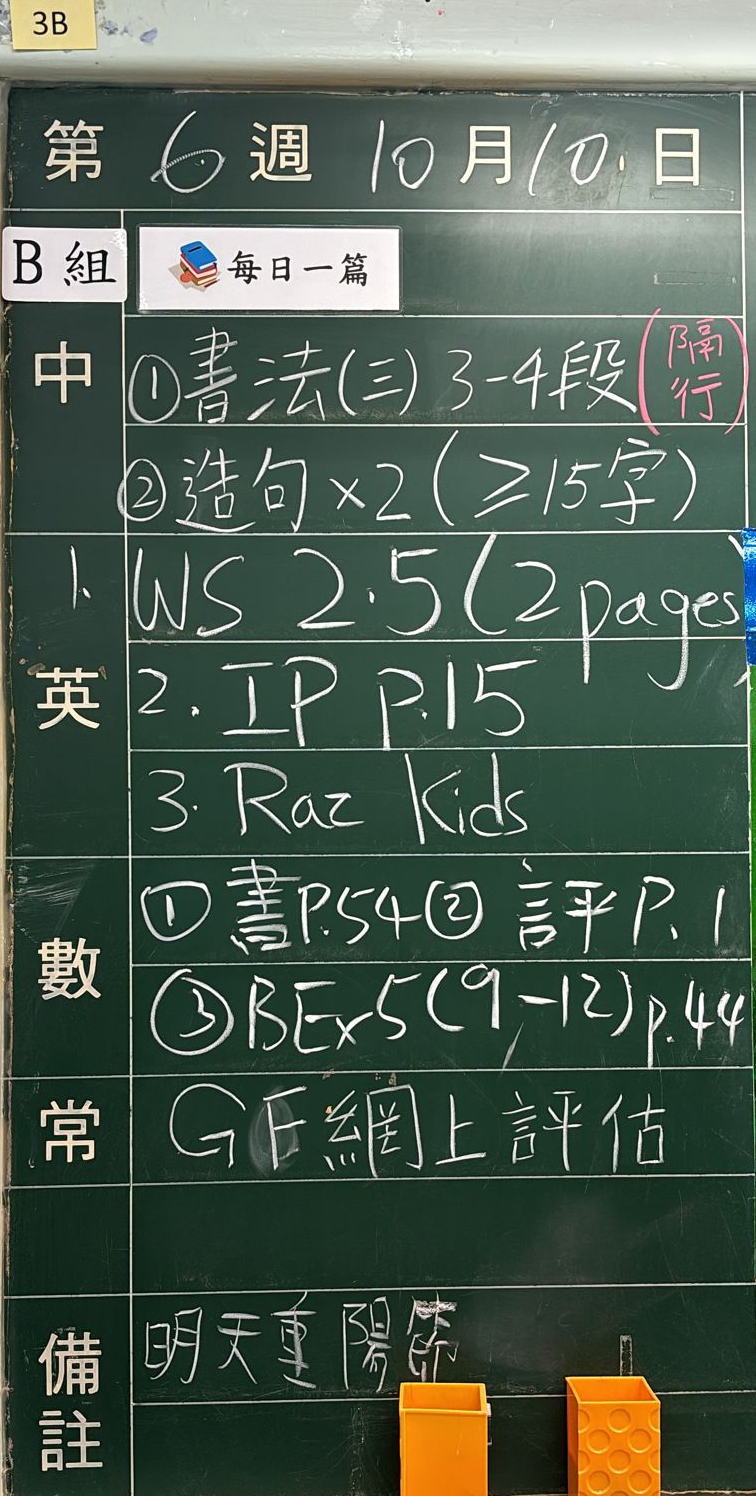 3B
第 6 週 10 月 10 日
B 組 每日一篇
中 ①書法(三) 3-4段 (隔行)
②造句 ×2 (≥15字)
1. WS 2.5 (2 pages)
英 2. IP P.15
3. Raz Kids
數 ① 書P.54 ② 評 P. 1
③ BEx5 (9-12) p.44
常 GF 網上評估
備註 明天重陽節